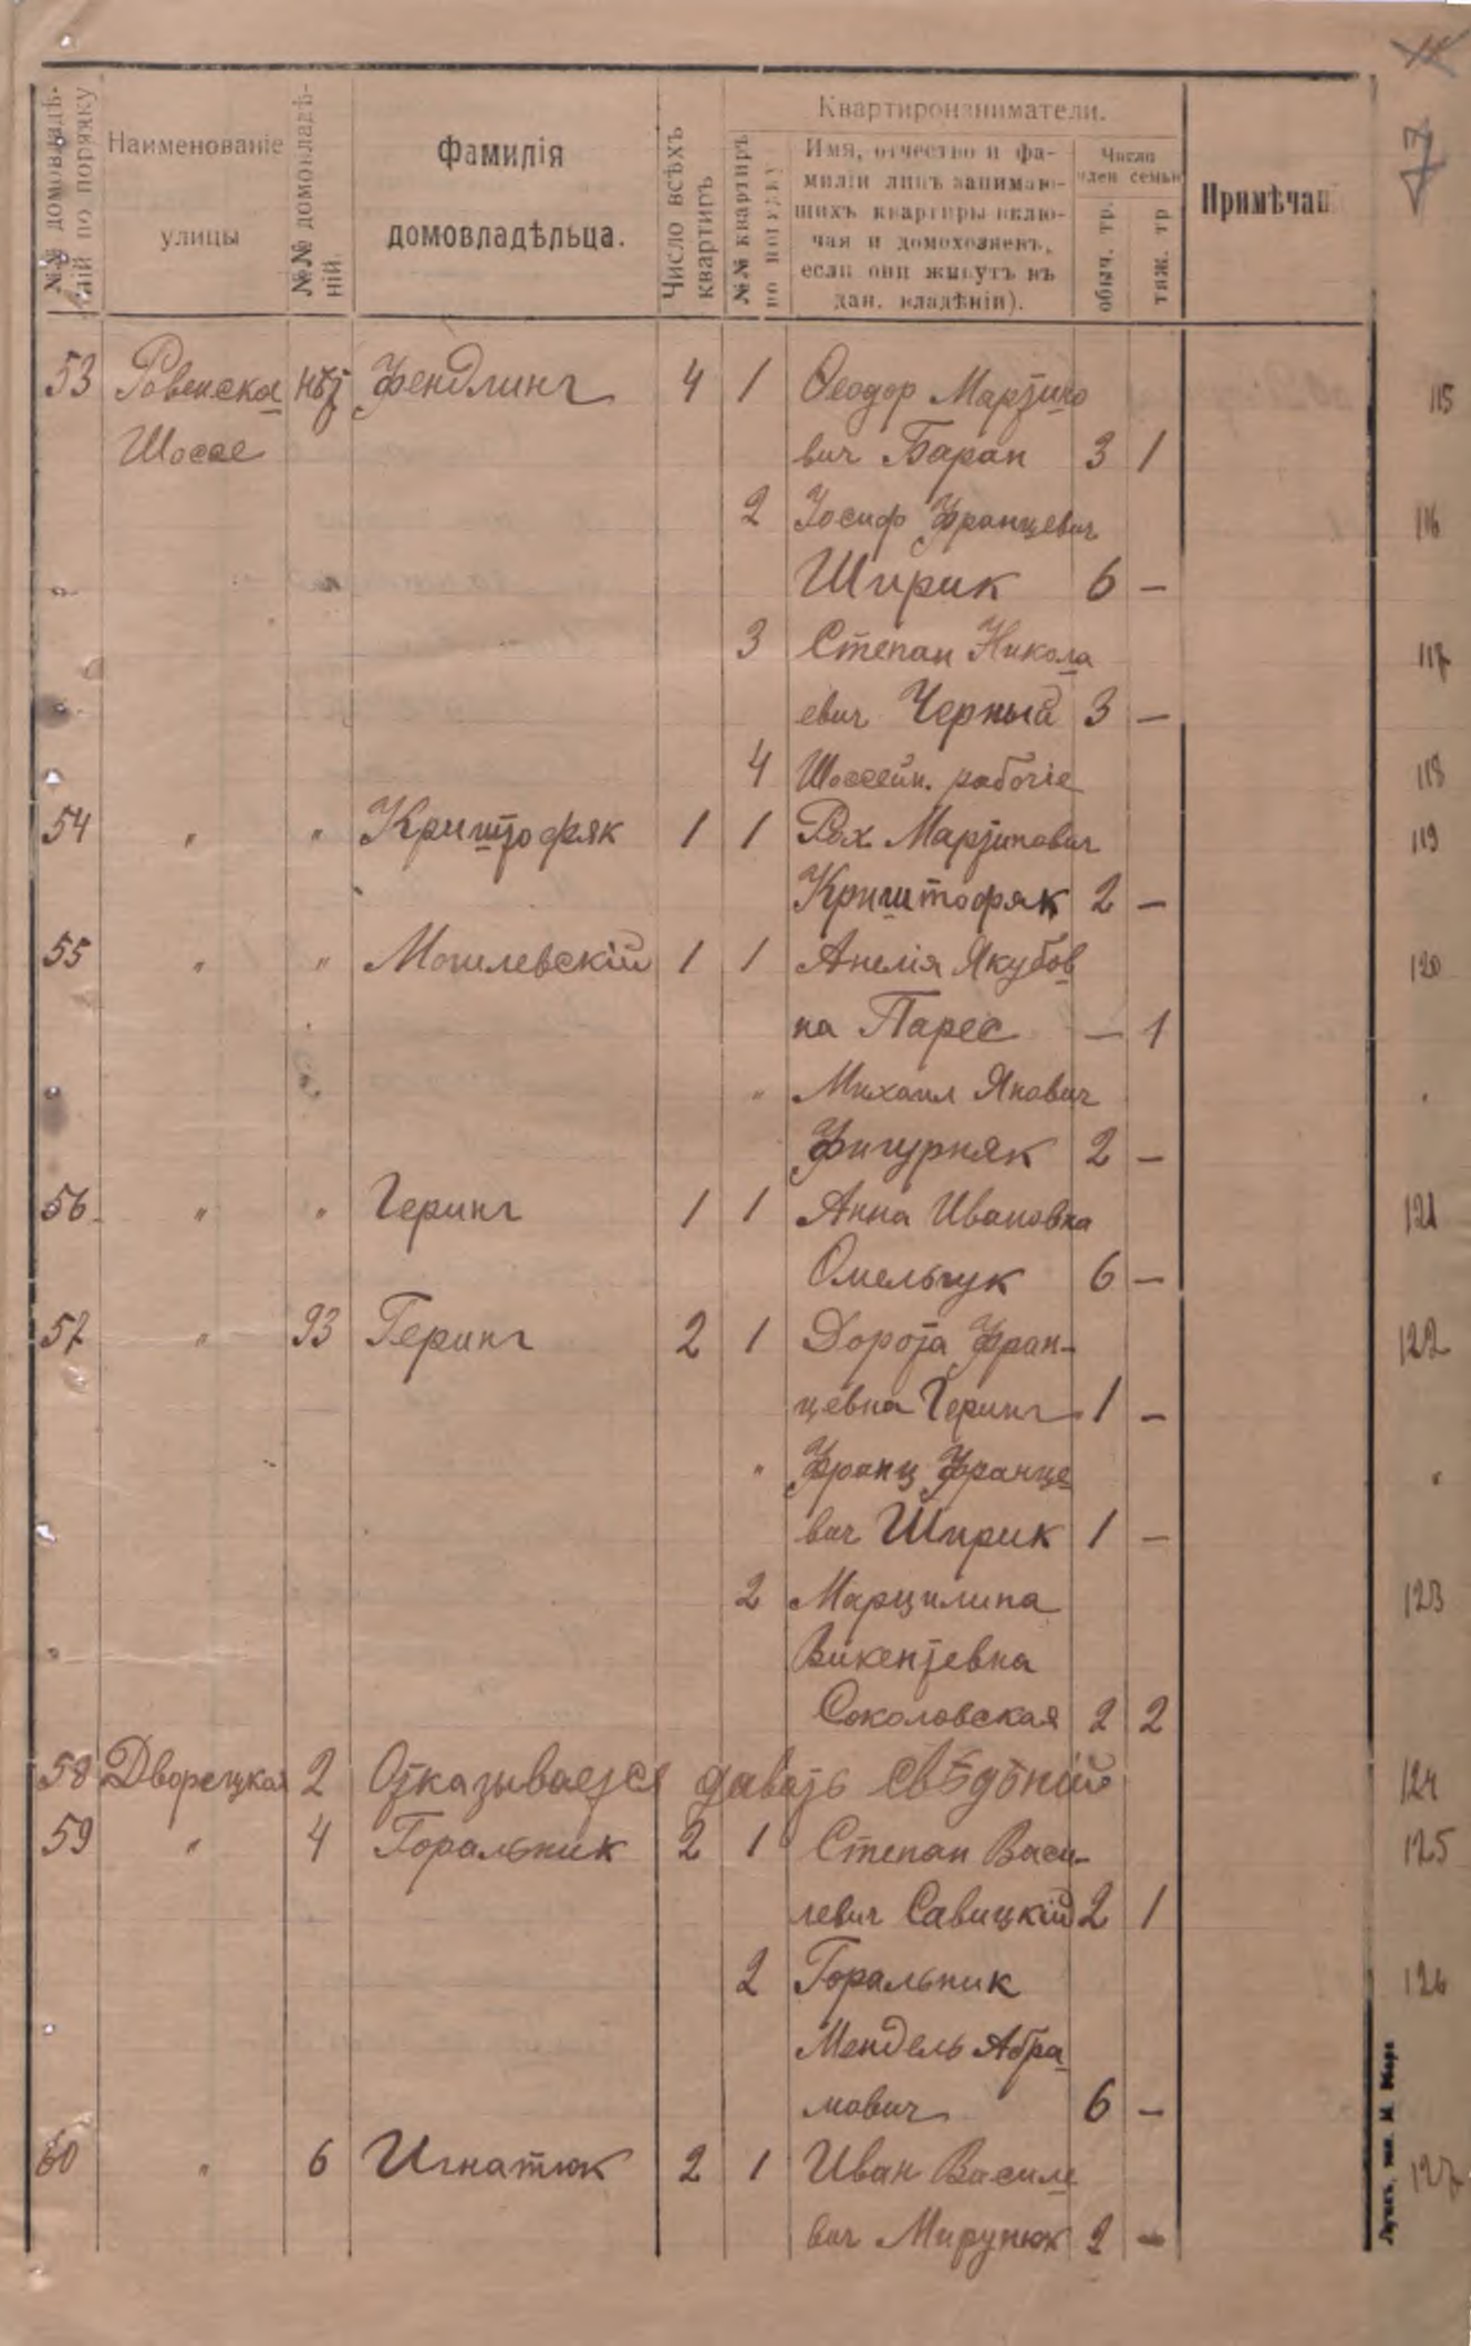 7
№№ домовладѣ-
ній по порядку
Наименованіе
улицы
№№ домовладѣ-
ній.
Фамилія
домовладѣльца.
Число всѣхъ
квартиръ
Квартиронаниматели.
№№ квартиръ
Имя, отчество и фа-
миліи лицъ занимаю-
щихъ квартиры вклю-
чая и домохозяевъ,
если они живутъ въ
дан. владѣніи).
Число
член семьи
обыч. тр.
тяж. тр
Примѣчан
53 Ровенска нѣт Фендлинг 4 1 Феодор Мартино 115
Шоссе вич Баран 3 1
2 Іосиф Францевич 116
Ширик 6 —
3 Степан Никола 117
евич Черный 3 —
4 Шоссейн. рабочіе 118
54 " " Криштофяк 1 1 Рох Мартинович 119
Криштофяк 2 —
55 " " Могилевскій 1 1 Анелія Якубов 120
на Парес — 1
" Михаил Янович "
Фигурняк 2 —
56 " " Геринг 1 1 Анна Ивановна 121
Омельчук 6 —
57 " 93 Геринг 2 1 Дорота Фран- 122
цевна Геринг 1 —
" Франц Франце "
вич Ширик 1 —
2 Марцилина 123
Викентевна
Соколовская 2 2
58 Дворецкая 2 Отказывается давать свѣдѣній 124
59 " 4 Горальник 2 1 Степан Васи- 125
левич Савицкій 2 1
2 Горальник 126
Мендель Абра
мович 6 —
60 " 6 Игнатюк 2 1 Иван Василе 127
вич Мирунюк 2 —